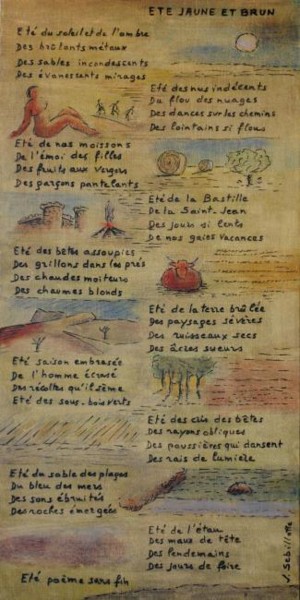 ETE JAUNE ET BRUN
Eté du soleil et de l'ombre
Des brûlants métaux
Des sables incandescents
Des évanescents mirages
Eté des nus indécents
Du flou des nuages
Des danses sur les chemins
Des lointains si flous
Eté de nos moissons
De l'émoi des filles
Des fruits aux vergers
Des garçons pantelants
Eté de la Bastille
De la Saint Jean
Des jours si lents
De nos gaies vacances
Eté des bêtes assoupies
Des grillons dans les prés
Des chaudes moiteurs
Des chaumes blonds
Eté de la terre brûlée
Des paysages sévères
Des ruisseaux secs
Des âcres sueurs
Eté saison embrasée
De l'homme écrasé
Des récoltes qu'il sème
Eté des sous-bois verts
Eté des cris des bêtes
Des rayons obliques
Des poussières qui dansent
Des rais de lumière
Eté du sable des plages
Du bleu des mers
Des sons ébruités
Des roches émergées
Eté de l'étau
Des maux de tête
Des lendemains
Des jours de foire
Eté poème sans fin
J. Sebillotte